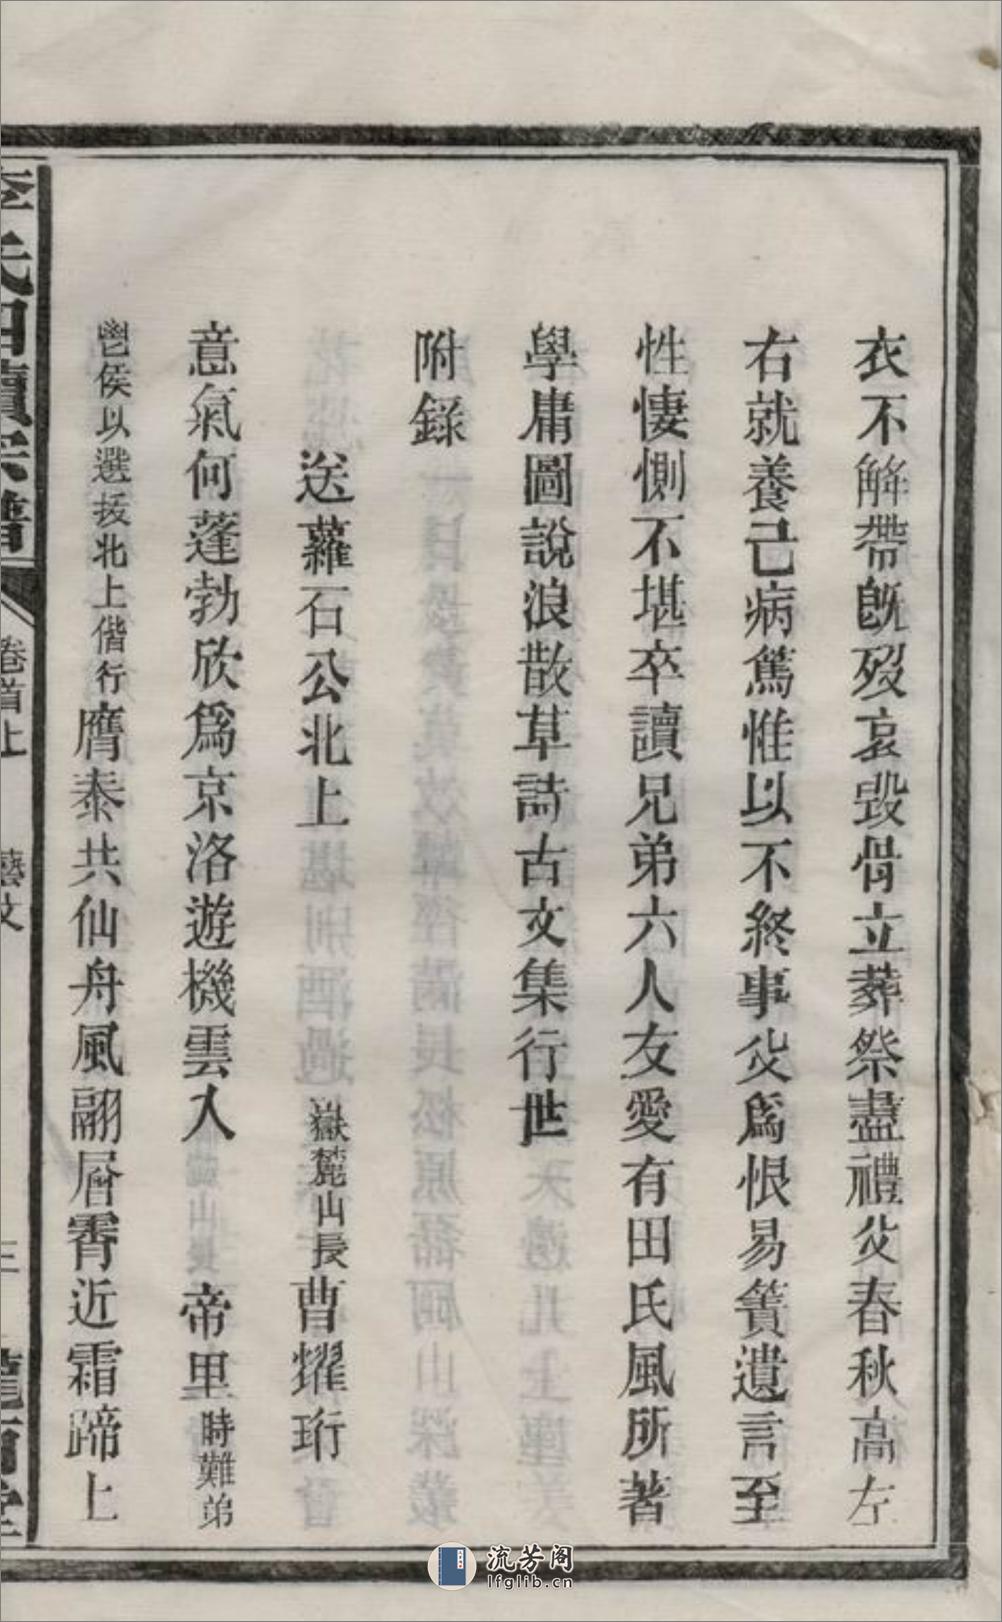 衣不解帶旣歿哀毀骨立葬祭盡禮父春秋高左
右就養己病篤惟以不終事父爲恨易簀遺言至
性悽惻不堪卒讀兄弟六人友愛有田氏風所著
學庸圖說浪散草詩古文集行世
附錄
送蘿石公北上 嶽麓山長曹耀珩
意氣何蓬勃欣爲京洛遊機雲入 帝里時難弟
鬯侯以選拔北上偕行膺泰共仙舟風翮層霄近霜蹄上
李氏四續宗譜 卷首上 藝文 三 龍門堂
流芳阁
lfglib.cn